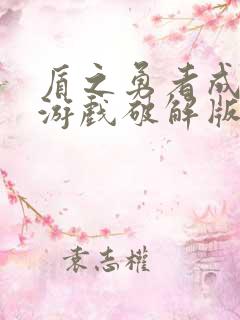 盾之勇者成
游戏破解版
袁志權